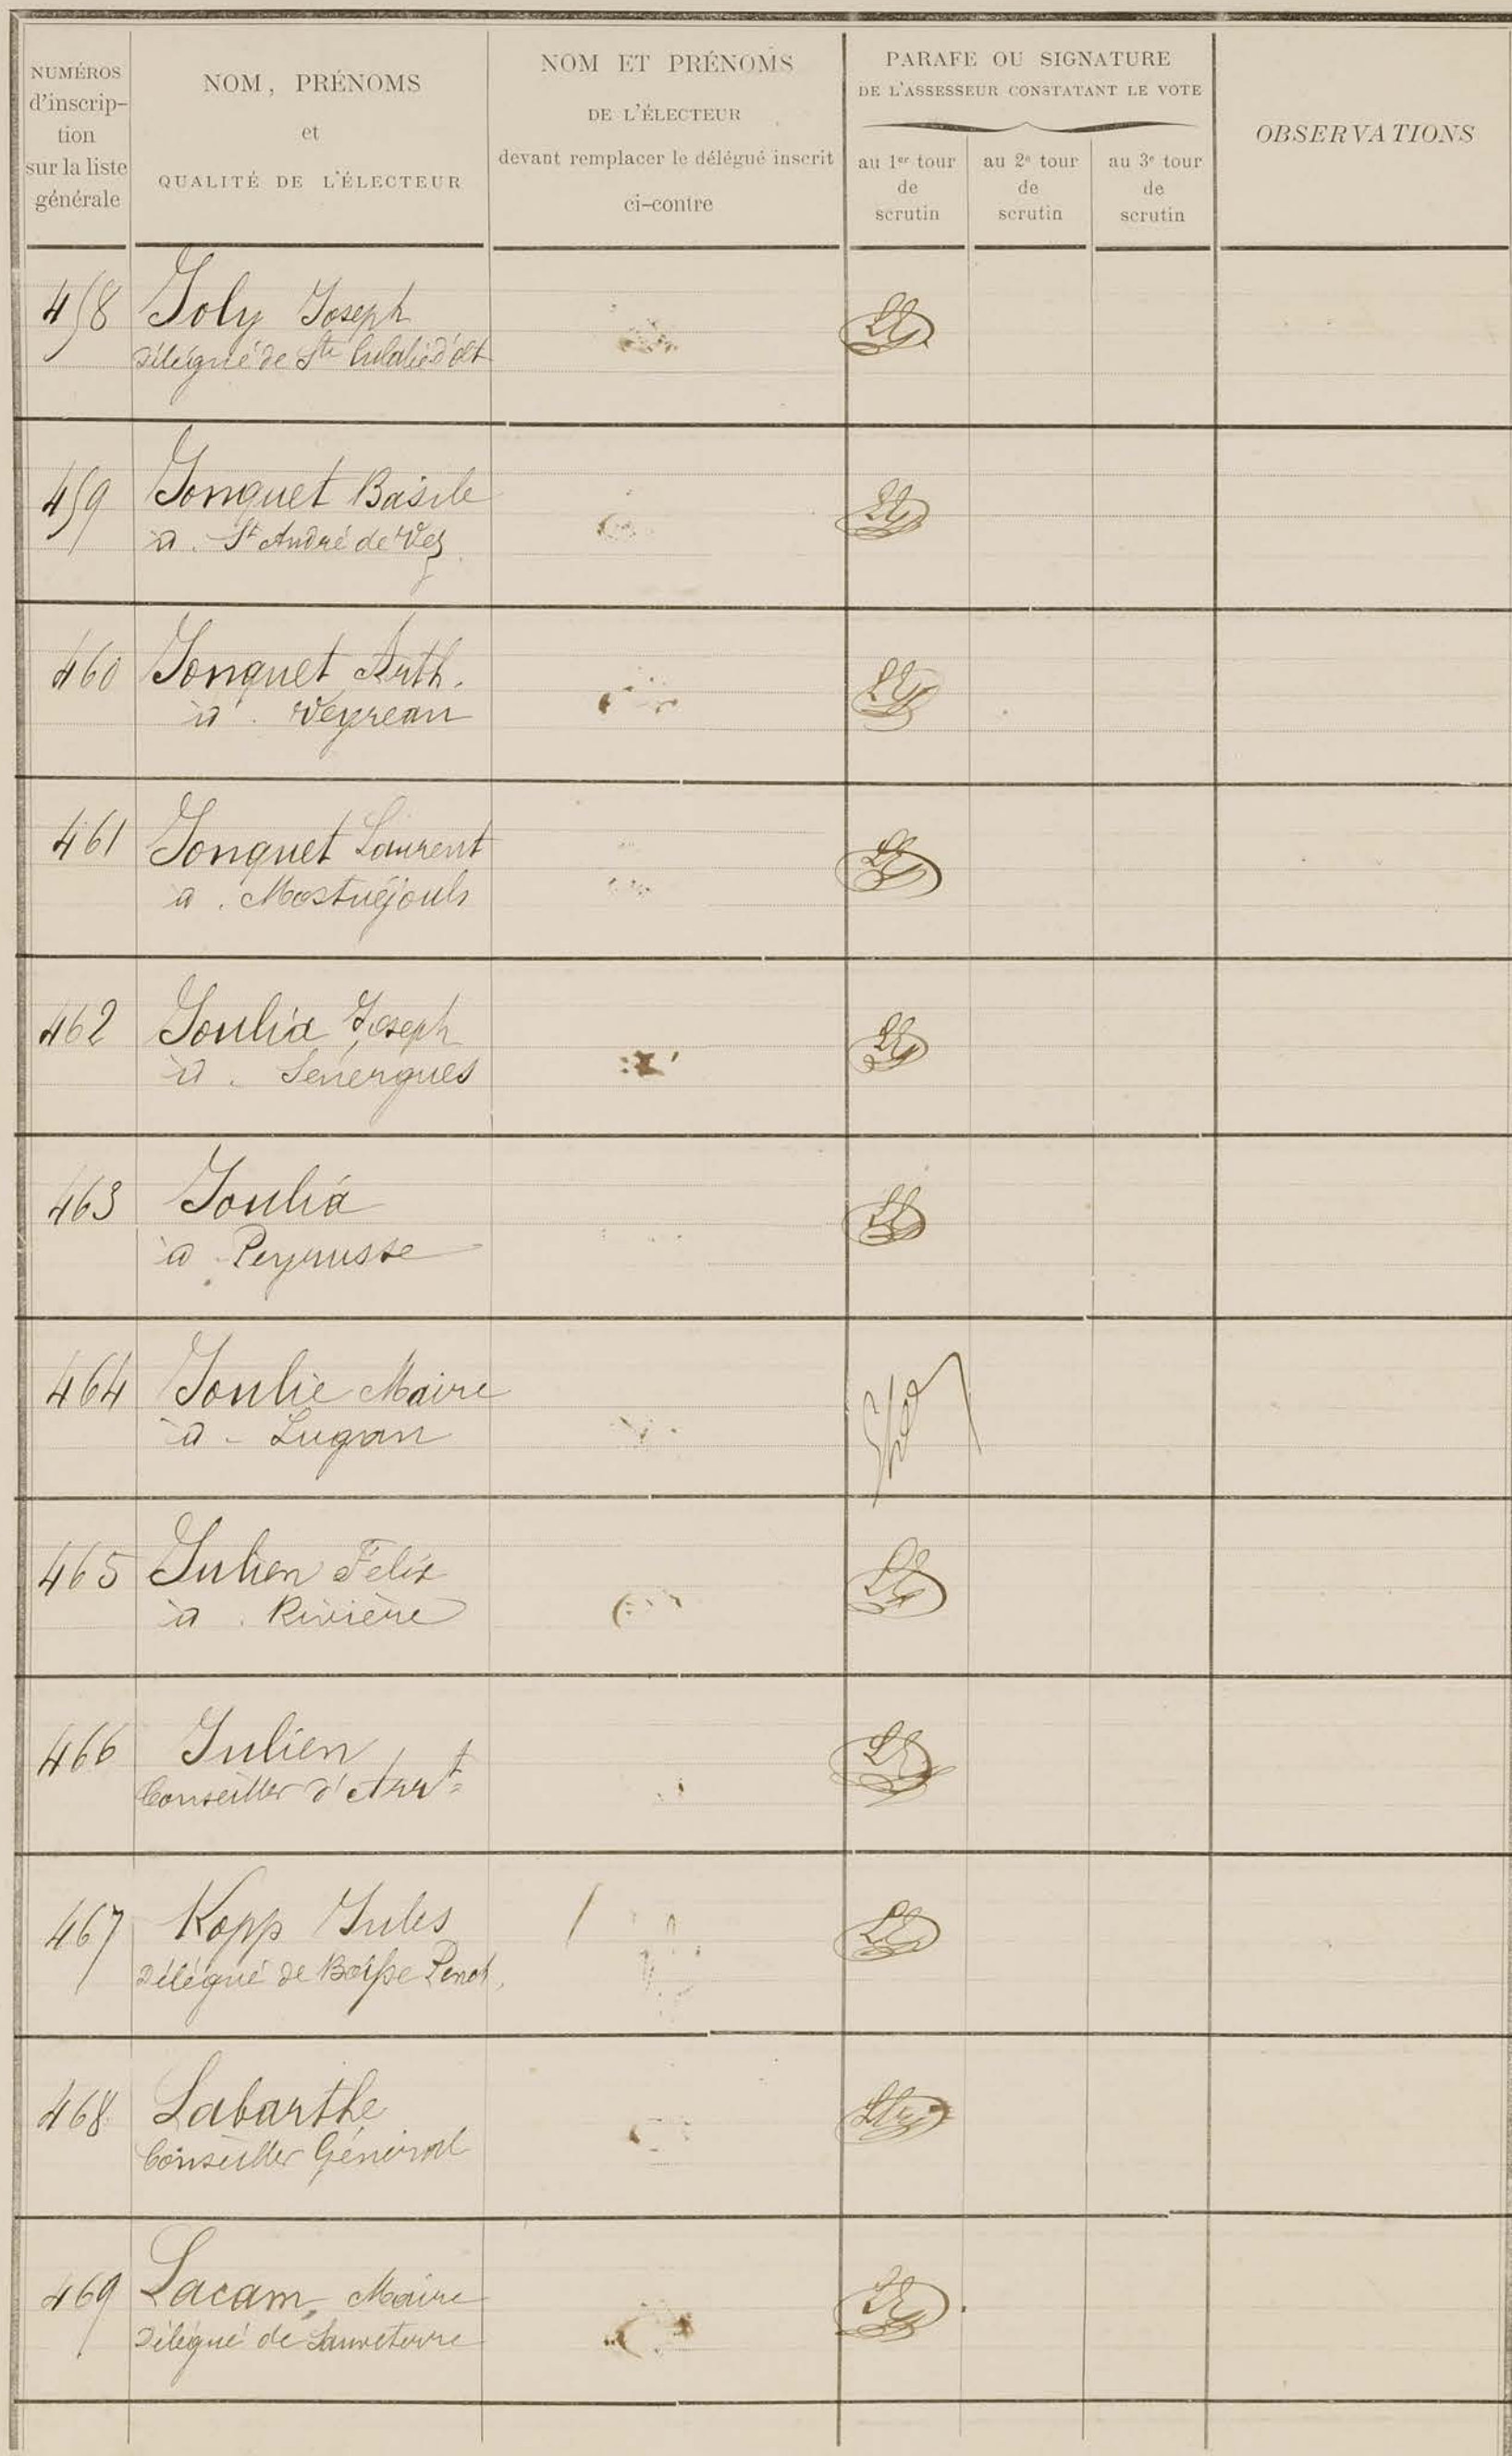 NUMÉROS
d'inscrip-
tion
sur la liste
générale
NOM, PRÉNOMS
et
QUALITÉ DE L'ÉLECTEUR
NOM ET PRÉNOMS
DE L'ÉLECTEUR
devant remplacer le délégué inscrit
ci-contre
PARAFE OU SIGNATURE
DE L'ASSESSEUR CONSTATANT LE VOTE
au 1er tour
de
scrutin
au 2e tour
de
scrutin
au 3e tour
de
scrutin
OBSERVATIONS
458 Joly Joseph
Délégué de Ste Eulalie d'Olt
459 Jonquet Basile
à St André de Vez
460 Jonquet Arth.
à Veyreau
461 Jonquet Laurent
à Mostuéjouls
462 Joulia Joseph
à Sénergues
463 Joulia
à Peyrusse
464 Joulie Maire
à - Lugan
465 Julien Felix
à Rivière
466 Julien
Conseiller d'Arrt
467 Kopp Jules
Délégué de Boisse Penot
468 Labarthe
Conseiller Général
469 Lacam, Maire
Délégué de Sauveterre